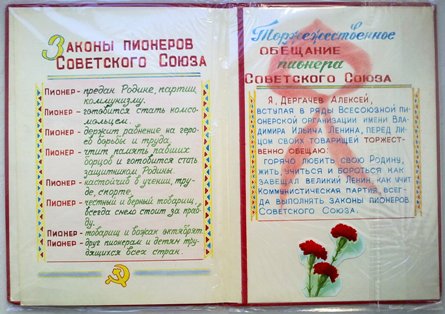 Законы пионеров
Советского Союза
Пионер - предан Родине, партии,
коммунизму.
Пионер - готовится стать комсо-
мольцем.
Пионер - держит равнение на геро-
ев борьбы и труда.
Пионер - чтит память павших
борцов и готовится стать
защитником Родины.
Пионер - настойчив в учении, тру-
де, спорте.
Пионер - честный и верный товарищ,
всегда смело стоит за прав-
ду.
Пионер - товарищ и вожак октябрят.
Пионер - друг пионерам и детям тру-
дящихся всех стран.
Торжественное
обещание
пионера
Советского Союза
Я, Дергачев Алексей,
вступая в ряды Всесоюзной пи-
онерской организации имени Вла-
димира Ильича Ленина, перед ли-
цом своих товарищей торжест-
венно обещаю:
горячо любить свою Родину,
жить, учиться и бороться, как
завещал великий Ленин, как учит
Коммунистическая партия, всег-
да выполнять законы пионеров
Советского Союза.